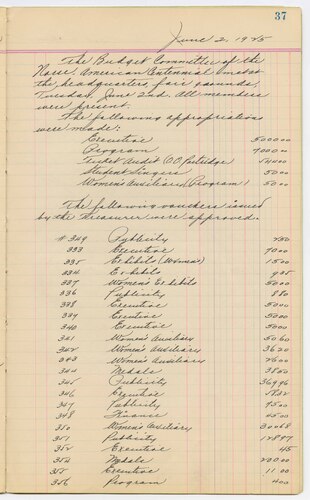 37
June 2, 1925
The Budget Committee of the
Norse-American Centennial met at
the headquarters, fair grounds,
Tuesday June 2nd. All members
were present.
The following appropriations
were made:
Executive 50000
Program 700000
Ticket Audit O.O.
Student Singers 5000
Women's Auxiliary (Program) 5000
The following vouchers issued
by the Treasurer were approved.
# 349 Publicity
333 Executive
335 Exhibits (Women's) 1500
334 Exhibits
337 Women's Exhibits 5000
336 Publicity 880
338 Executive 5000
339 Executive 5000
340 Executive 5000
341 Women's Auxiliary 5060
342 Women's Auxiliary 3620
343 Women's Auxiliary
344 Medals
345 Publicity 36996
346 Executive
347 Publicity
348 Finance
350 Women's Auxiliary 30068
351 Publicity
352 Executive 45
354 Medals
355 Executive 1100
356 Program 400